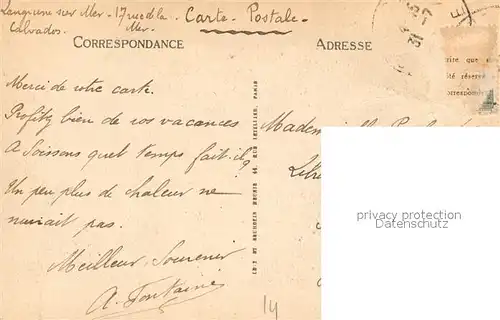 Langrune sur Mer - 17 rue de la Mer -
Calvados.
Carte Postale
CORRESPONDANCE
ADRESSE
Merci de votre carte.
Profitez bien de vos vacances
A Soissons quel temps fait-il?
Un peu plus de chaleur ne
nuirait pas.
Meilleur Souvenir
A. Fontaine
14
Mademoiselle
privacy protection
Datenschutz